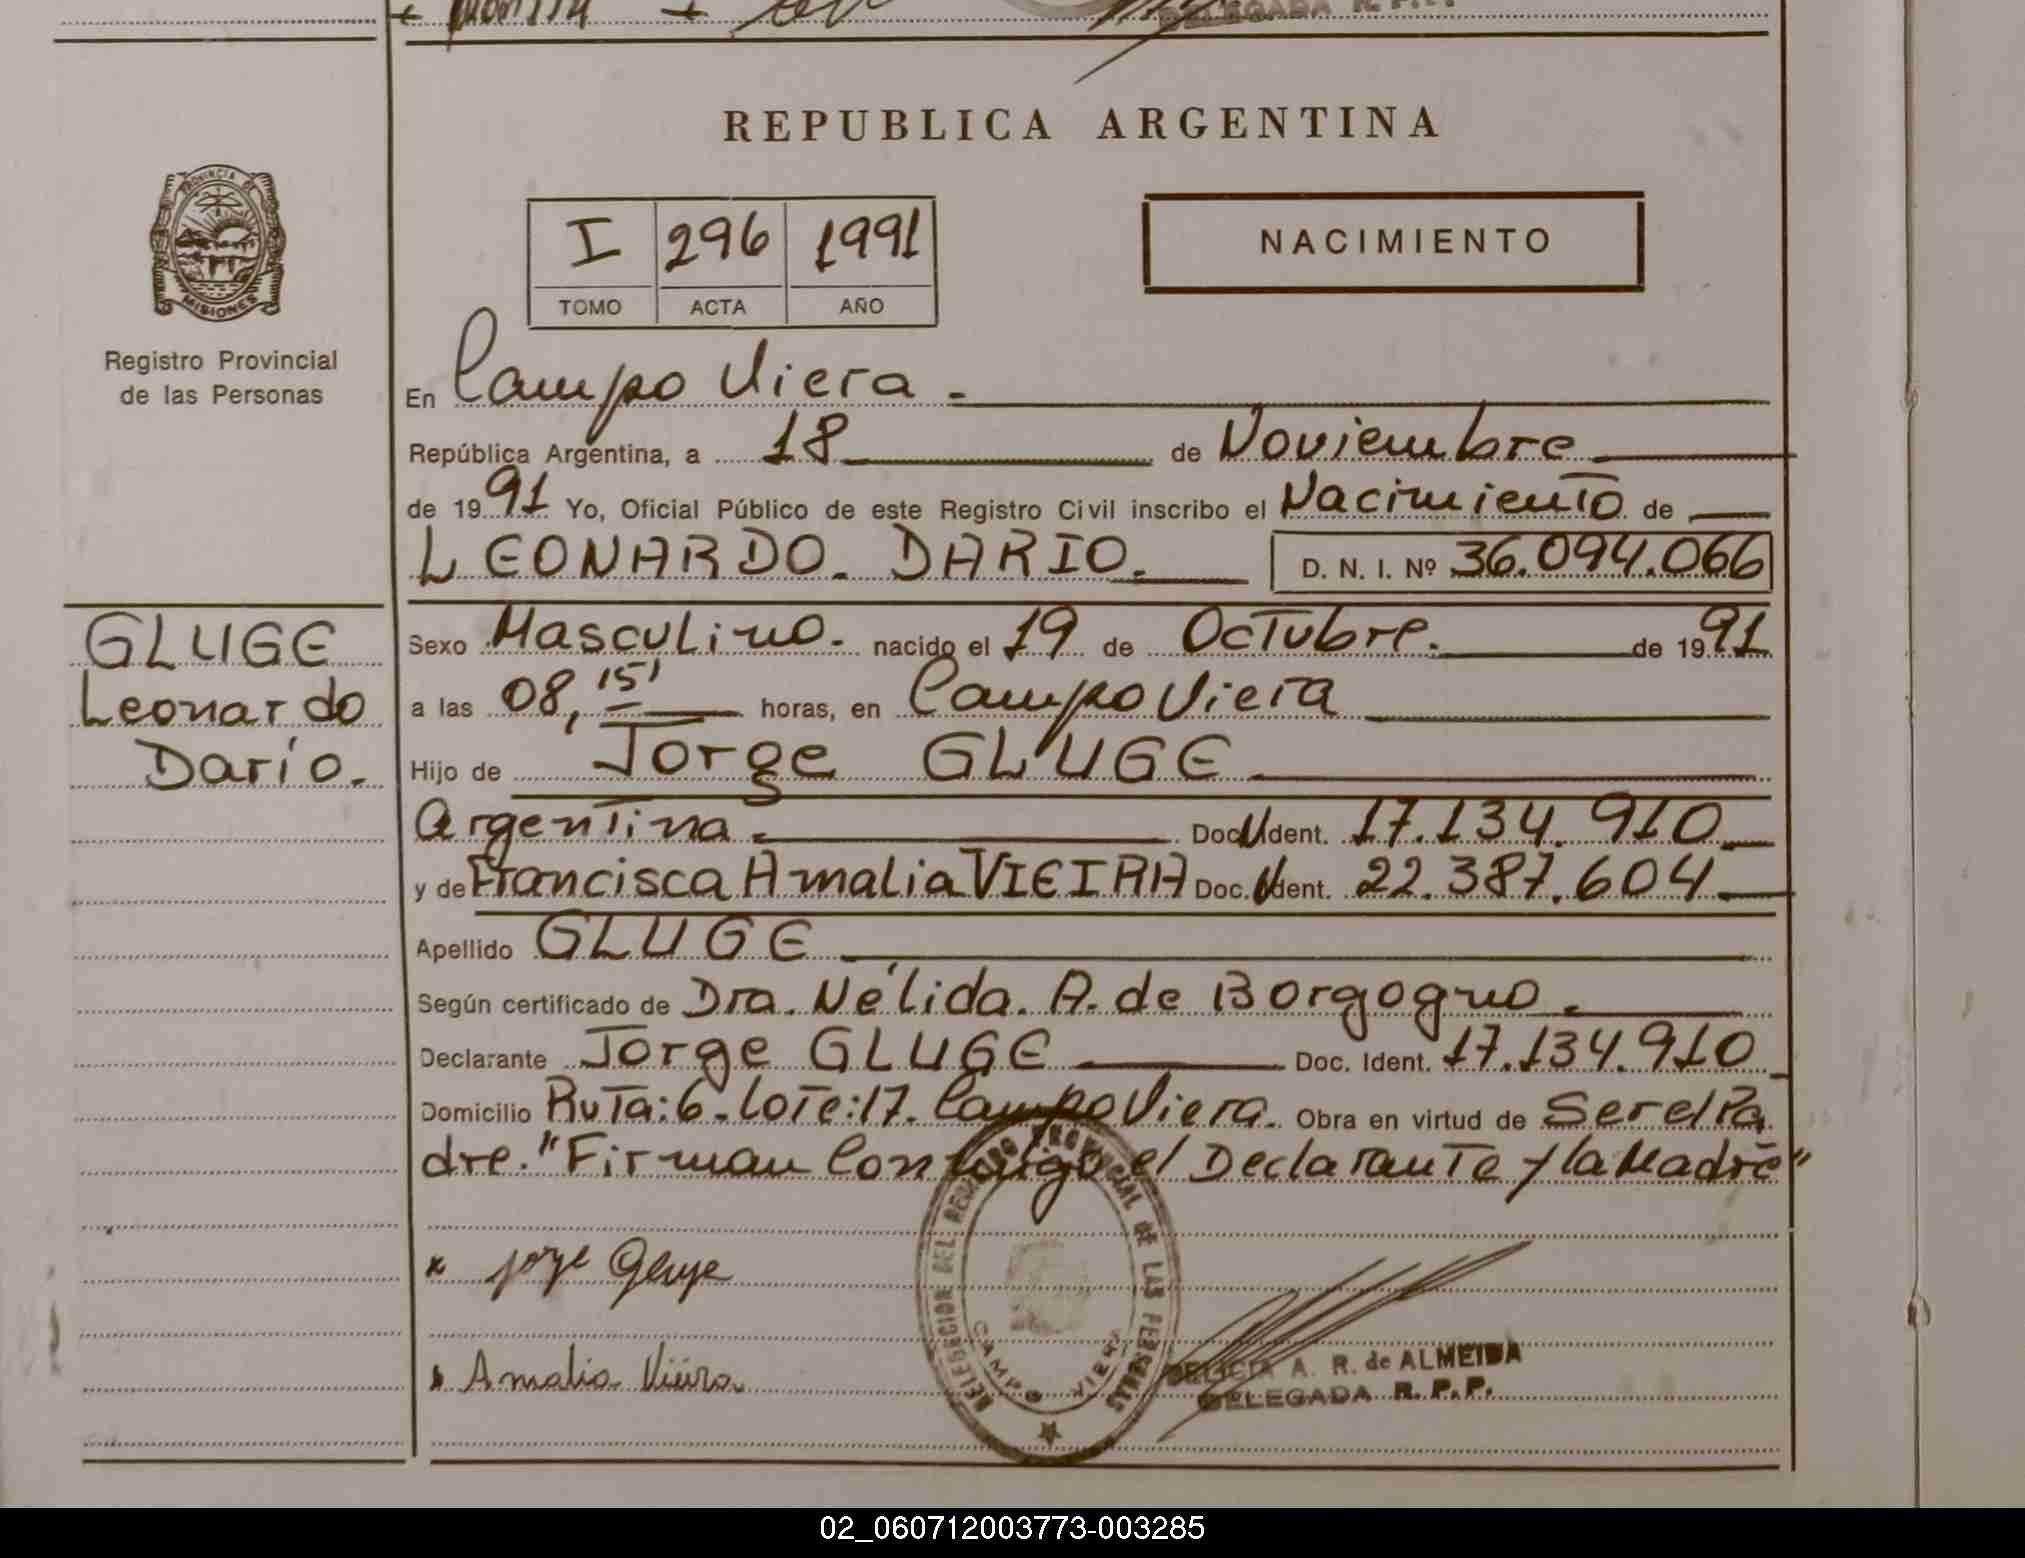 DELEGADA R. P. P.
REPUBLICA ARGENTINA
PROVINCIA DE
MISIONES
Registro Provincial
de las Personas
I 296 1991
TOMO ACTA AÑO
NACIMIENTO
En Campo Viera.
República Argentina, a 18 de Noviembre
de 1991 Yo, Oficial Público de este Registro Civil inscribo el Nacimiento de
LEONARDO. DARIO. D. N. I. Nº 36.094.066
GLUGE
Leonardo
Darío.
Sexo Masculino. nacido el 19 de Octubre. de 1991
a las 08,15' horas, en Campo Viera
Hijo de Jorge GLUGE
Argentina. Doc. Ident. 17.134.910
y de Francisca Amalia VIEIRA Doc. Ident. 22.387.604
Apellido GLUGE
Según certificado de Dra. Nélida. A. de Borgogno.
Declarante Jorge GLUGE Doc. Ident. 17.134.910
Domicilio Ruta: 6. Lote: 17. Campo Viera. Obra en virtud de Ser el Pa
dre. "Firman Conmigo el Declarante y la Madre"
DELEGACION DEL REGISTRO PROVINCIAL DE LAS PERSONAS
CAMPO VIERA
Jorge Gluge
Amalia Vieira
DELICIA A. R. de ALMEIDA
DELEGADA R. P. P.
02_060712003773-003285